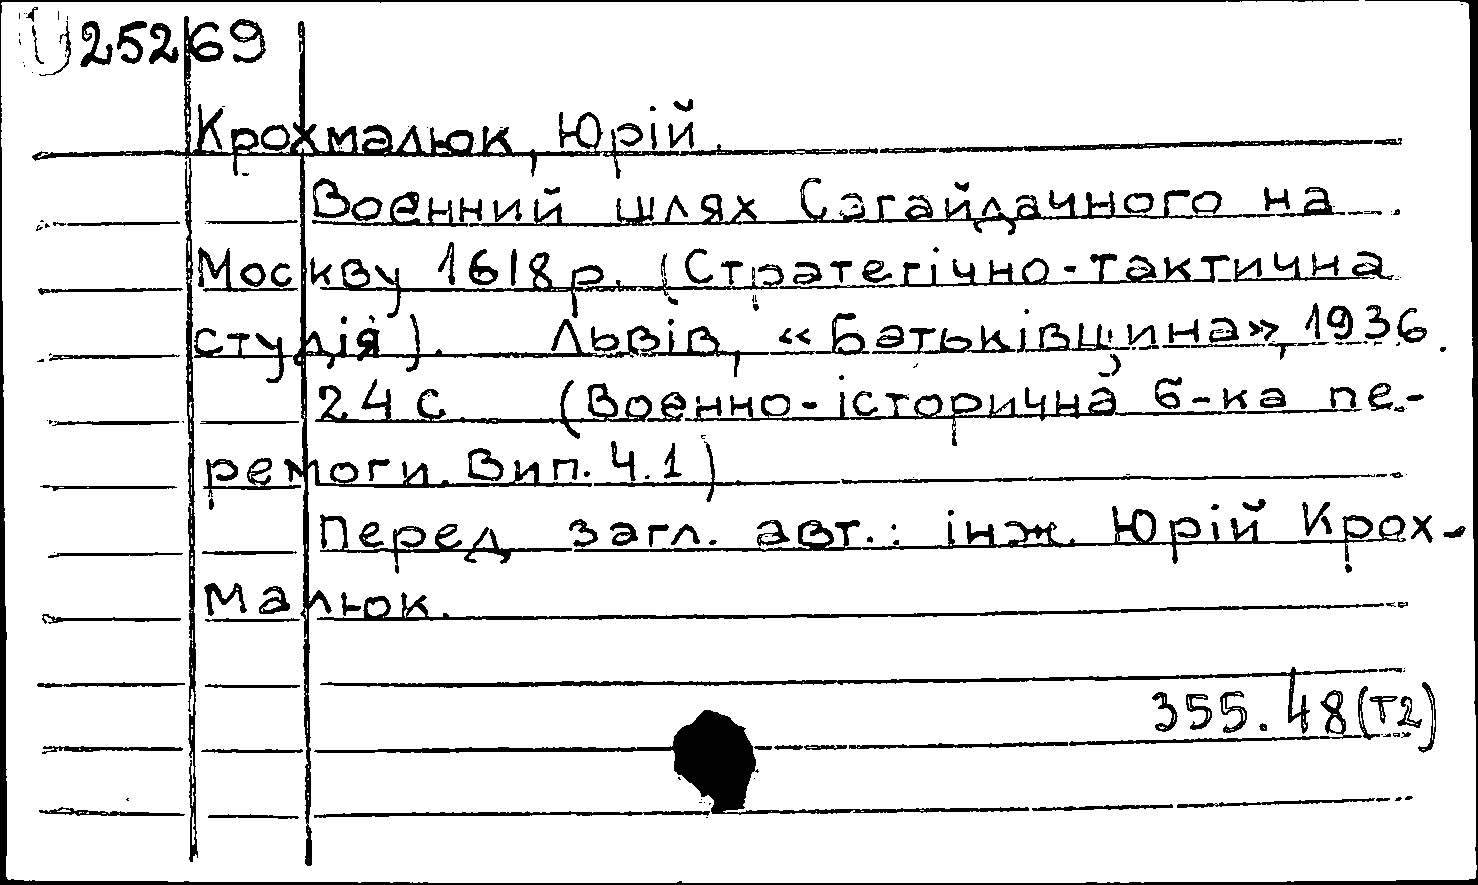 U 25269
Крохмалюк, Юрій.
Воєнний шлях Сагайдачного на
Москву 1618 р. (Стратегічно-тактична
студія). Львів, «Батьківщина», 1936.
24 с. (Воєнно-історична б-ка пе-
ремоги. Вип. Ч.1)
Перед загл. авт.: інж. Юрій Крох-
малюк.
355.48(Т2)